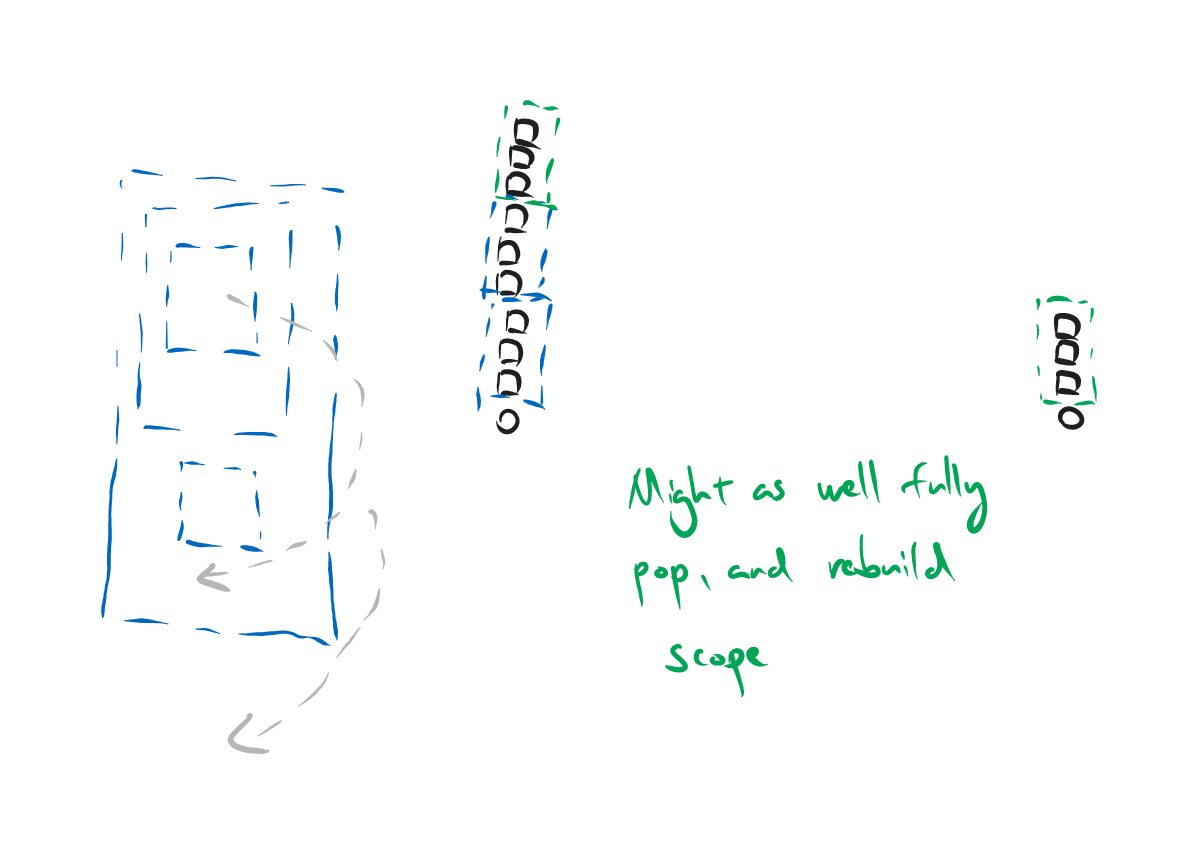 Might as well fully
pop, and rebuild
scope